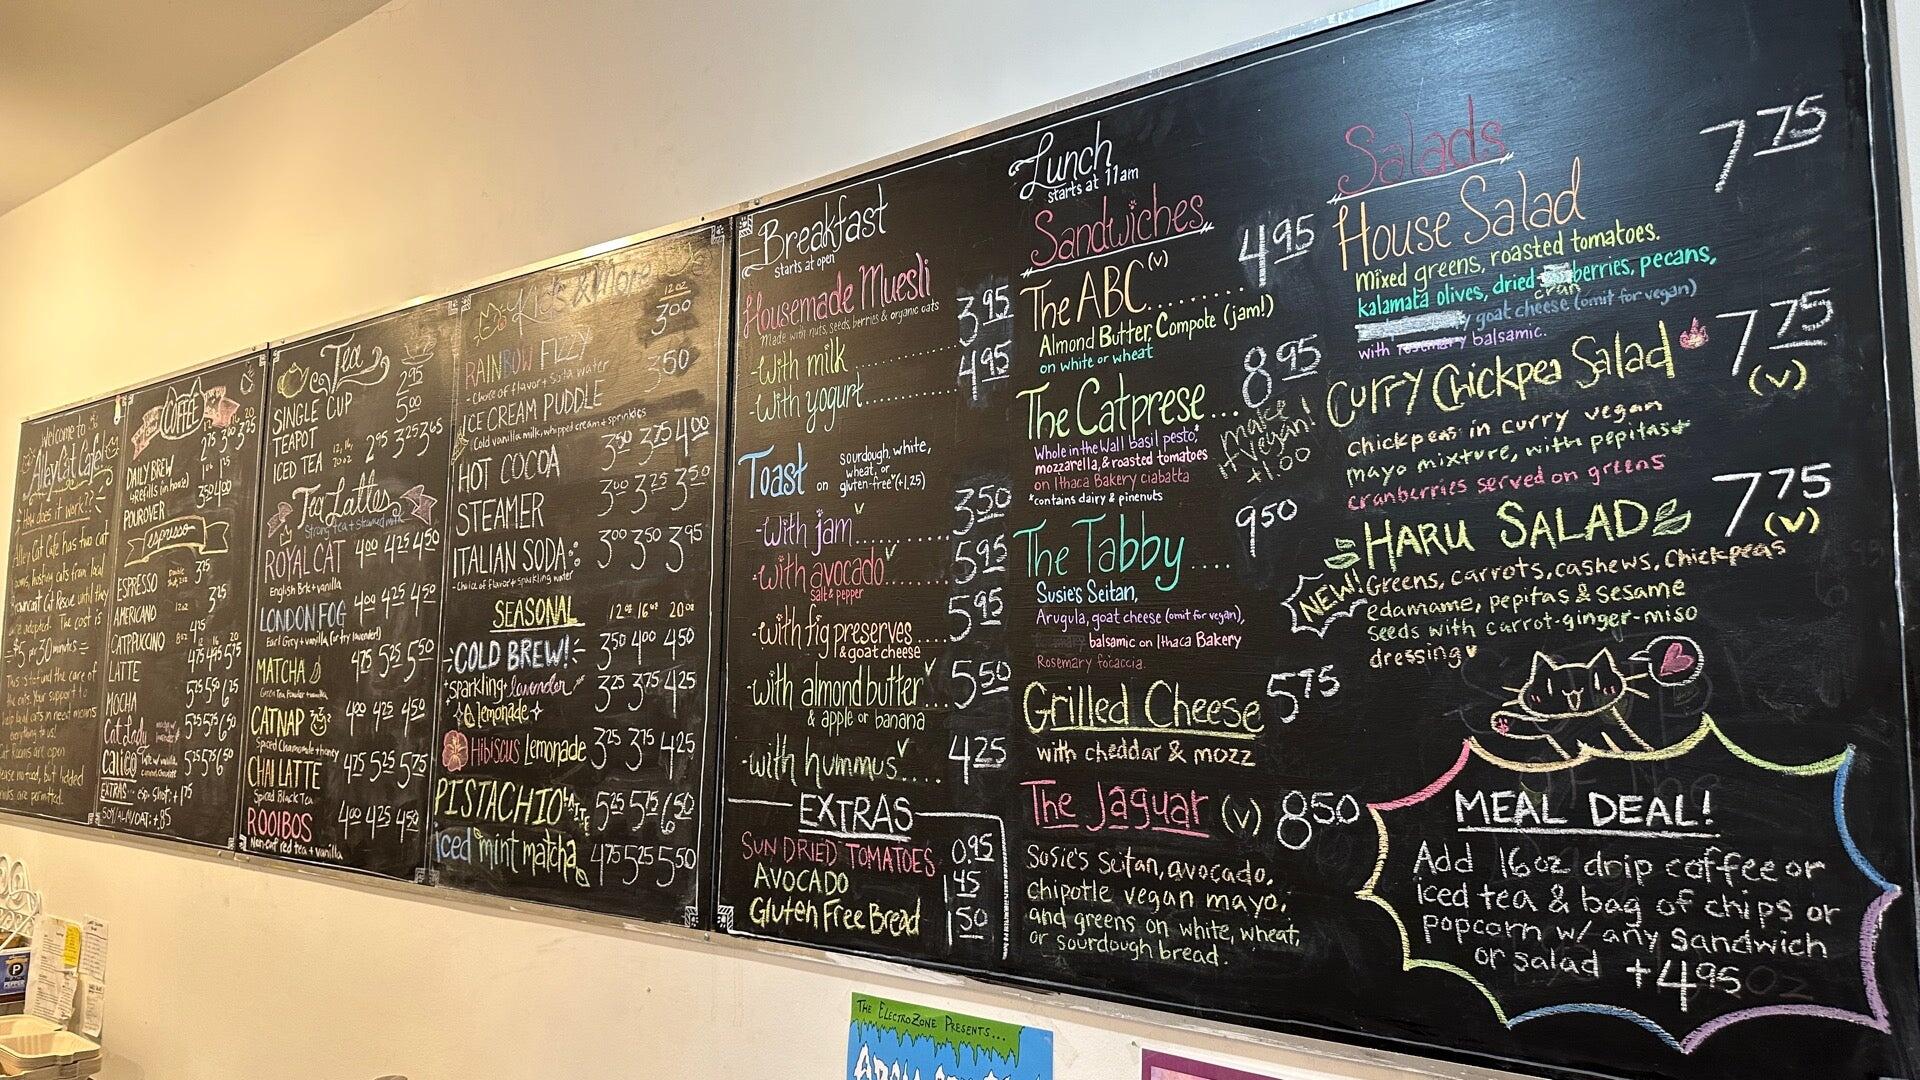 Welcome to
Alley Cat Cafe!
How does it work??
Alley Cat Cafe has two cat
rooms, hosting cats from local
Browncoat Cat Rescue until they
are adopted. The cost is
$5 per 30 minutes
This is to fund the care of
the cats. Your support to
help local cats in need means
everything to us!
Cat Rooms are open
COFFEE
12 16 20
DAILY BREW 2 75 3 00 3 25
REFILLS (in house)
POUROVER 3 50 4 00
espresso
ESPRESSO Double 3 25
AMERICANO 12oz 3 25
CAPPUCCINO 8oz 4 25
LATTE 4 75 4 95 5 75
MOCHA 5 25 5 50 6 25
Cat Lady 5 25 5 75 6 50
Calico 5 25 5 75 6 50
EXTRAS... esp. shot: +1 75
SOY/ALM/OAT: +.85
Tea
SINGLE CUP 2 95
TEAPOT 5 00
ICED TEA 12, 16, 20 oz 2 95 3 25 3 65
Tea Lattes
Strong tea + steamed milk
ROYAL CAT 4 00 4 25 4 50
English Brk + vanilla
LONDON FOG 4 00 4 25 4 50
Earl Grey + vanilla (or try lavender)
MATCHA 4 75 5 25 5 50
Green Tea Powder + vanilla
CATNAP 4 00 4 25 4 50
Spiced Chamomile + honey
CHAI LATTE 4 75 5 25 5 75
Spiced Black Tea
ROOIBOS 4 00 4 25 4 50
Non-caf red tea + vanilla
Kids & More
12 oz
RAINBOW FIZZY 3 00
- Choice of flavor + Soda water
ICE CREAM PUDDLE 3 50
Cold vanilla milk, whipped cream + sprinkles
HOT COCOA 3 50 3 75 4 00
STEAMER 3 00 3 25 3 50
ITALIAN SODA: 3 00 3 50 3 95
- Choice of flavor + sparkling water
SEASONAL 12oz 16oz 20oz
COLD BREW! 3 50 4 00 4 50
sparkling lavender 3 25 3 75 4 25
lemonade
Hibiscus Lemonade 3 25 3 75 4 25
PISTACHIO LATTE 5 25 5 75 6 50
iced mint matcha 4 75 5 25 5 50
Breakfast
starts at open
Housemade Muesli
Made with nuts, seeds, berries & organic oats
-with milk............ 3 95
-with yogurt............ 4 95
Toast on sourdough, white,
wheat, or
gluten-free* (+1.25)
-with jam............ 3 50
-with avocado............ 5 95
salt & pepper
-with fig preserves.... 5 95
& goat cheese
-with almond butter... 5 50
& apple or banana
-with hummus.... 4 25
EXTRAS
SUN DRIED TOMATOES 0.95
AVOCADO 1 45
Gluten Free Bread 1 50
Lunch
starts at 11am
Sandwiches
The ABC (v)......... 4 95
Almond Butter, Compote (jam!)
on white or wheat
The Catprese... 8 95
make it vegan! +1.00
Whole in the Wall basil pesto*,
mozzarella, & roasted tomatoes
on Ithaca Bakery ciabatta
*contains dairy & pinenuts
The Tabby.... 9 50
Susie's Seitan,
Arugula, goat cheese (omit for vegan),
balsamic on Ithaca Bakery
Rosemary focaccia.
Grilled Cheese 5 75
with cheddar & mozz
The Jaguar (v) 8 50
Susie's Seitan, avocado,
chipotle vegan mayo,
and greens on white, wheat,
or sourdough bread.
Salads
House Salad 7 75
Mixed greens, roasted tomatoes.
kalamata olives, dried cranberries, pecans,
goat cheese (omit for vegan)
with balsamic.
Curry Chickpea Salad 7 75 (v)
chickpeas in curry vegan
mayo mixture, with pepitas +
cranberries served on greens
HARU SALAD 7 75 (v)
NEW!
Greens, carrots, cashews, chickpeas
edamame, pepitas & sesame
seeds with carrot-ginger-miso
dressing
MEAL DEAL!
Add 16oz drip coffee or
iced tea & bag of chips or
popcorn w/ any sandwich
or salad +4 95
THE ELECTROZONE PRESENTS...